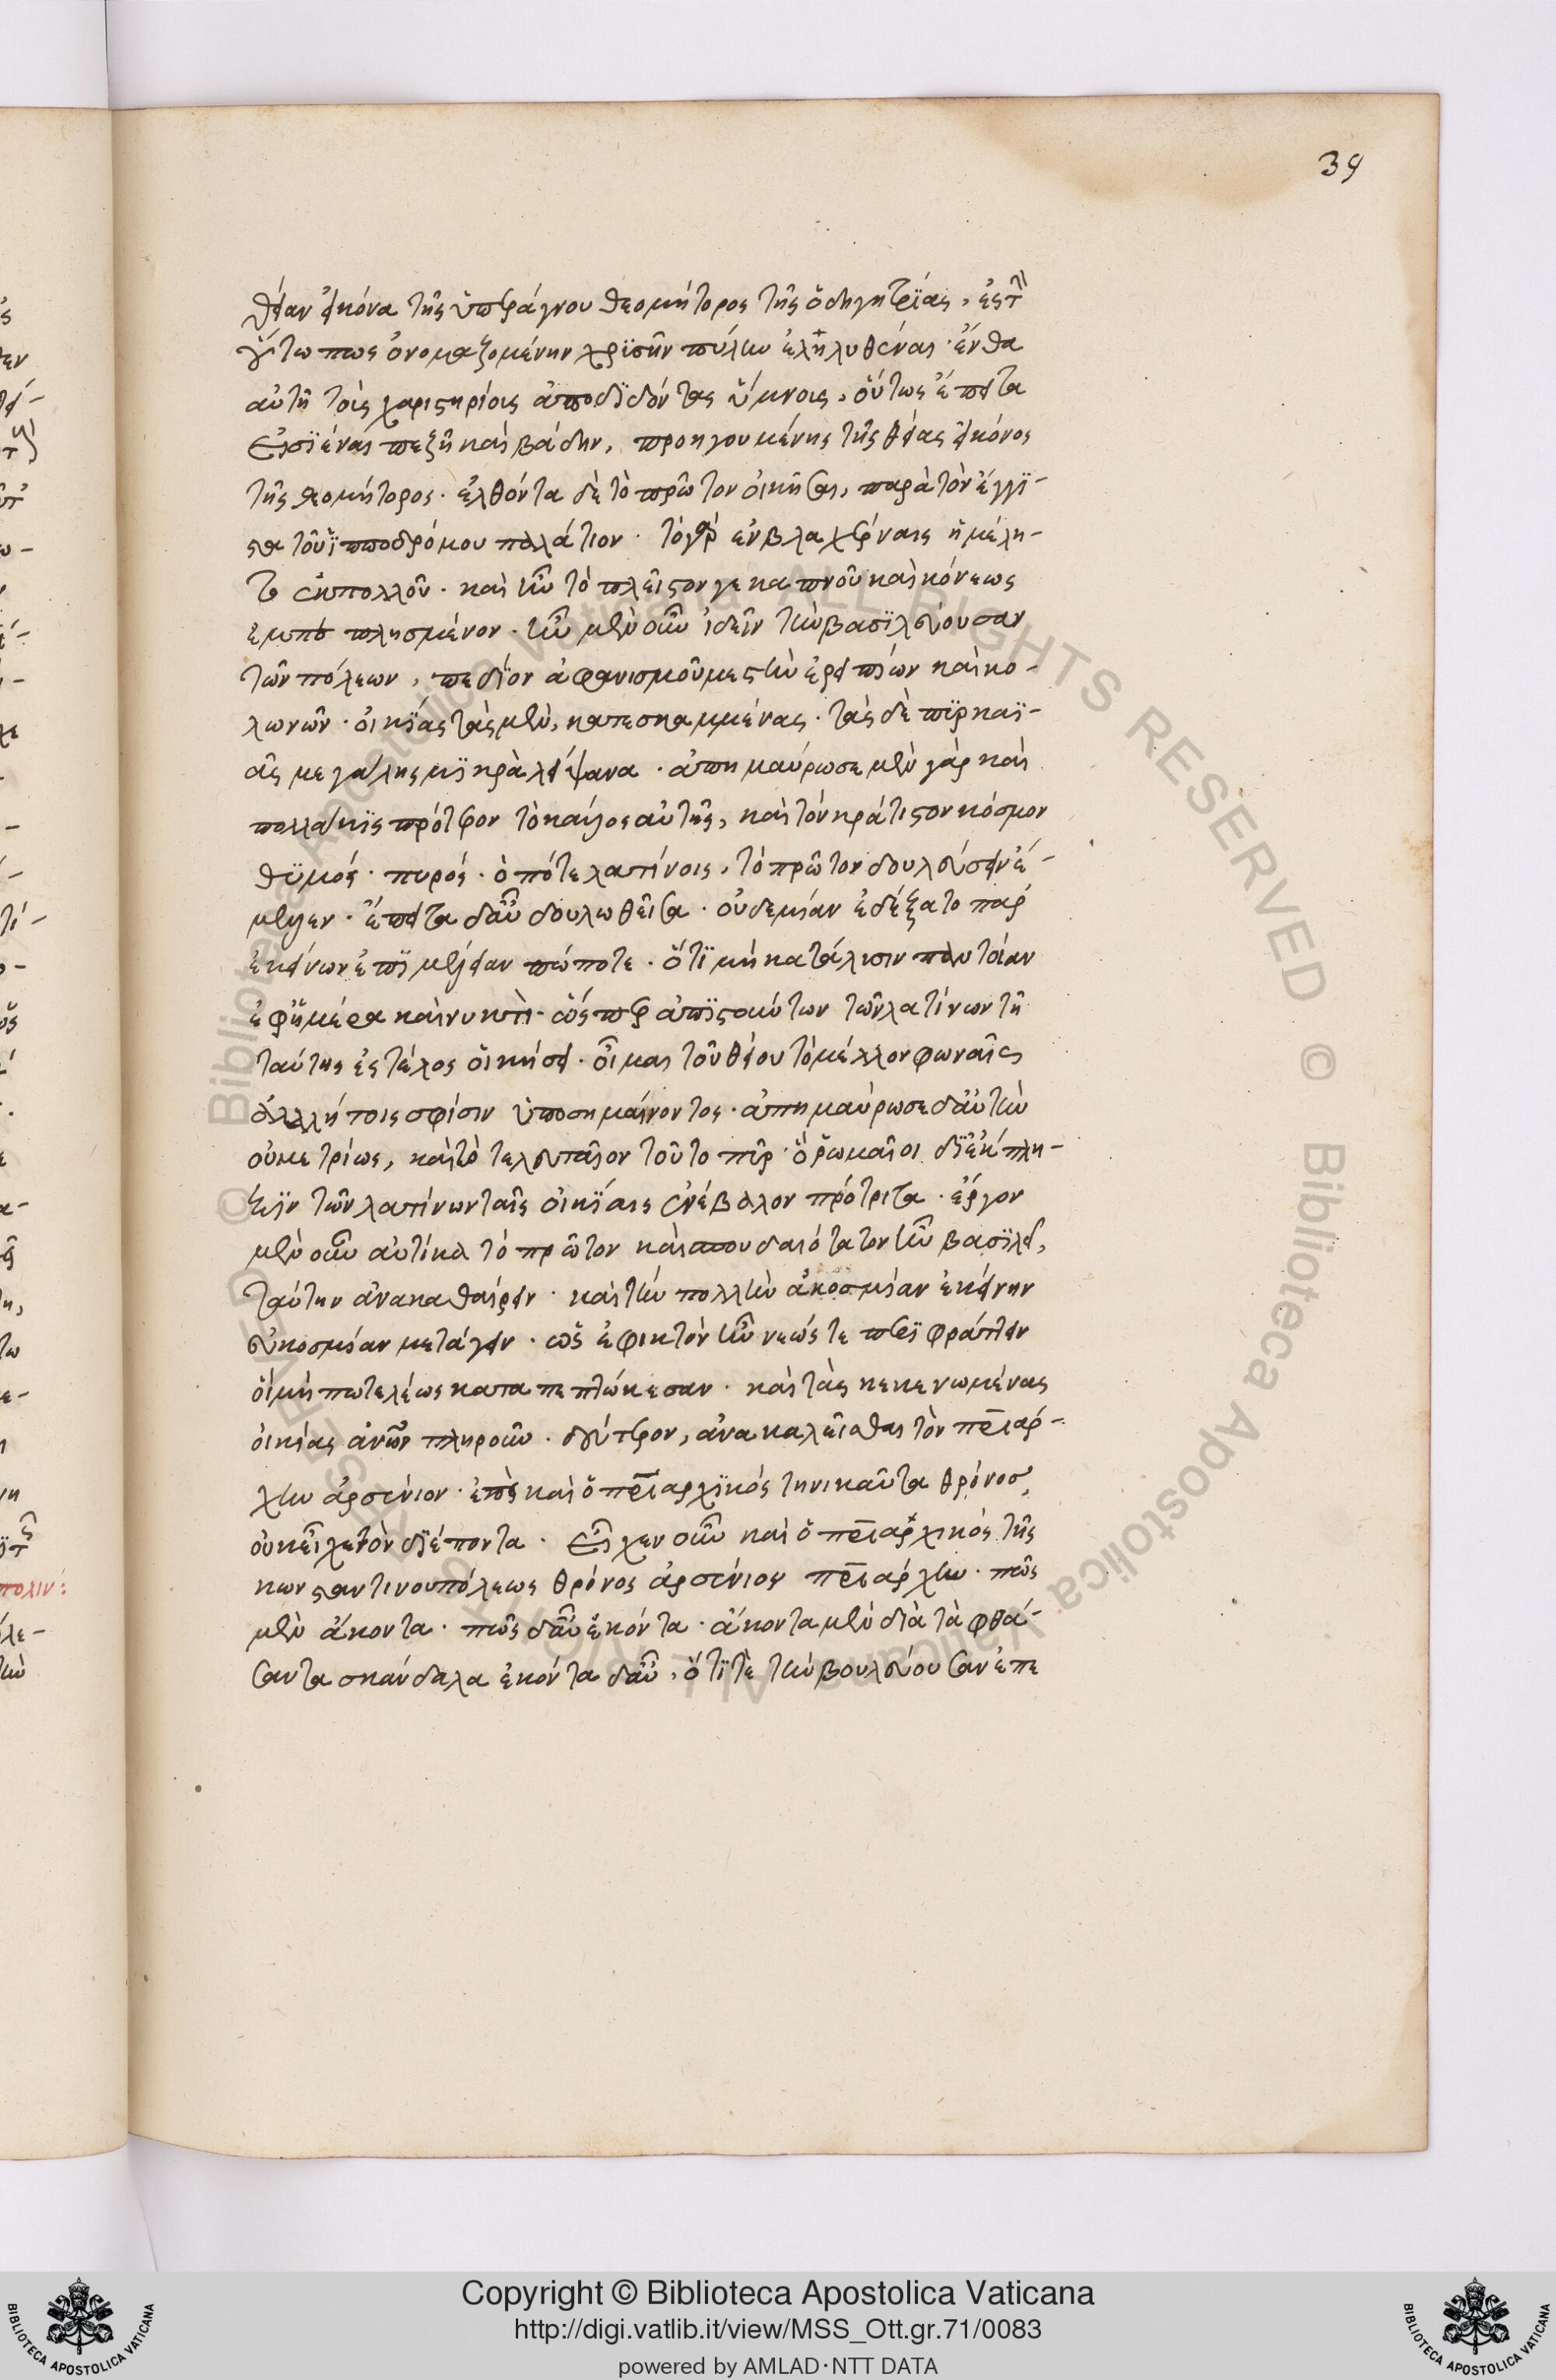 39
θείαν εἰκόνα τῆς ὑπεράγνου θεομήτορος τῆς ὁδηγητρίας, ἐς τὴν
οὕτω πως ὀνομαζομένην χρϊσῆν πύλην ἐληλυθέναι · ἔνθα
αὐτῆ τοὶς χαριστηρίοις ἀποδϊδόντας ὕμνοις, οὕτως ἔπειτα
εἰσϊέναι πεζῆ καὶ βάδην, προηγουμένης τῆς θείας εἰκόνος
τῆς θεομήτορος · ἐλθόντα δὲ τὸ πρῶτον οἰκῆσαι, παρὰ τὸν ἔγγϊ-
στα τοῦ ϊπποδρόμου παλάτιον · τὸ γὰρ ἐν βλαχέρναις ἠμέλη-
το ἐκ πολλοῦ · καὶ ἦν τὸ πλεῖστον γε καπνοῦ καὶ κόνεως
ἐμπεπλησμένον · ἦν μὲν οὖν ἰδεῖν τὴν βασϊλεύουσαν
τῶν πόλεων, πεδίον ἀφανισμοῦ μεστὴν ἐρειπίων καὶ κο-
λωνῶν · οἰκϊας τὰς μὲν, κατεσκαμμένας · τὰς δὲ πϊρκαϊ-
ᾶς μεγάλης μϊκρὰ λείψανα · ἀπημαύρωσε μὲν γὰρ καὶ
πολλάκϊς πρότερον τὸ κάλλος αὐτῆς, καὶ τὸν κράτιστον κόσμον
θϋμός · πυρός · ὁπότε λατίνοις, τὸ πρῶτον δουλεύσειν ἔ-
μελλεν · ἔπειτα δ' αὖ δουλωθεῖσα · οὐδεμίαν ἐδέξατο παρ'
ἐκείνων ἐπϊμέλειαν πώποτε · ὅτϊ μὴ κατάλυσιν παντοίαν
ἐφ' ἡμέρα καὶ νυκτὶ · ὥσπερ ἀπϊστούντων τῶν λατίνων τῆ
ταύτης ἐς τέλος οἰκήσει · οἶμαι τοῦ θείου τὸ μέλλον φωναῖς
ἀλλήτοις σφίσιν ὑποσημαίνοντος · ἀπημαύρωσε δ' αὐτὴν
οὐ μετρίως, καὶ τὸ τελευταῖον τοῦτο πῦρ · ὃ ῥωμαῖοι δϊ' ἔκπλη-
ξϊν τῶν λατίνων ταῖς οἰκϊαις ἐνέβαλον πρότριτα · ἔργον
μὲν οὖν αὐτίκα τὸ πρῶτον καὶ σπουδαιότατον ἦν βασϊλεῖ,
ταύτην ἀνακαθαίρειν · καὶ τὴν πολλὴν ἀκοσμίαν ἐκείνην
εὐκοσμίαν μετάγειν · ὡς ἐφικτὸν ἦν νεώς τε περϊφράττειν
οἳ μήπω τελέως καταπεπτώκεσαν · καὶ τὰς κεκενωμένας
οἰκίας ἀνῶν πληροῦν · δεύτερον, ἀνακαλεῖσθαι τὸν πριάρ-
χην ἀρσένιον · ἐπεὶ καὶ ὁ πριαρχϊκὸς τηνικαῦτα θρόνος,
οὐκ εἶχε τὸν διέποντα · εἶχεν οὖν καὶ ὁ πριαρχικὸς τῆς
κωνσταντινουπόλεως θρόνος ἀρσένιον πριάρχην · πῶς
μὲν ἄκοντα · πῶς δ' αὖ ἑκόντα · ἄκοντα μὲν διὰ τὰ φθά-
σαντα σκάνδαλα ἑκόντα δ' αὖ, ὅτϊ τὲ τὴν βουλεύουσαν ἐπε
Copyright © Biblioteca Apostolica Vaticana
http://digi.vatlib.it/view/MSS_Ott.gr.71/0083
powered by AMLAD·NTT DATA